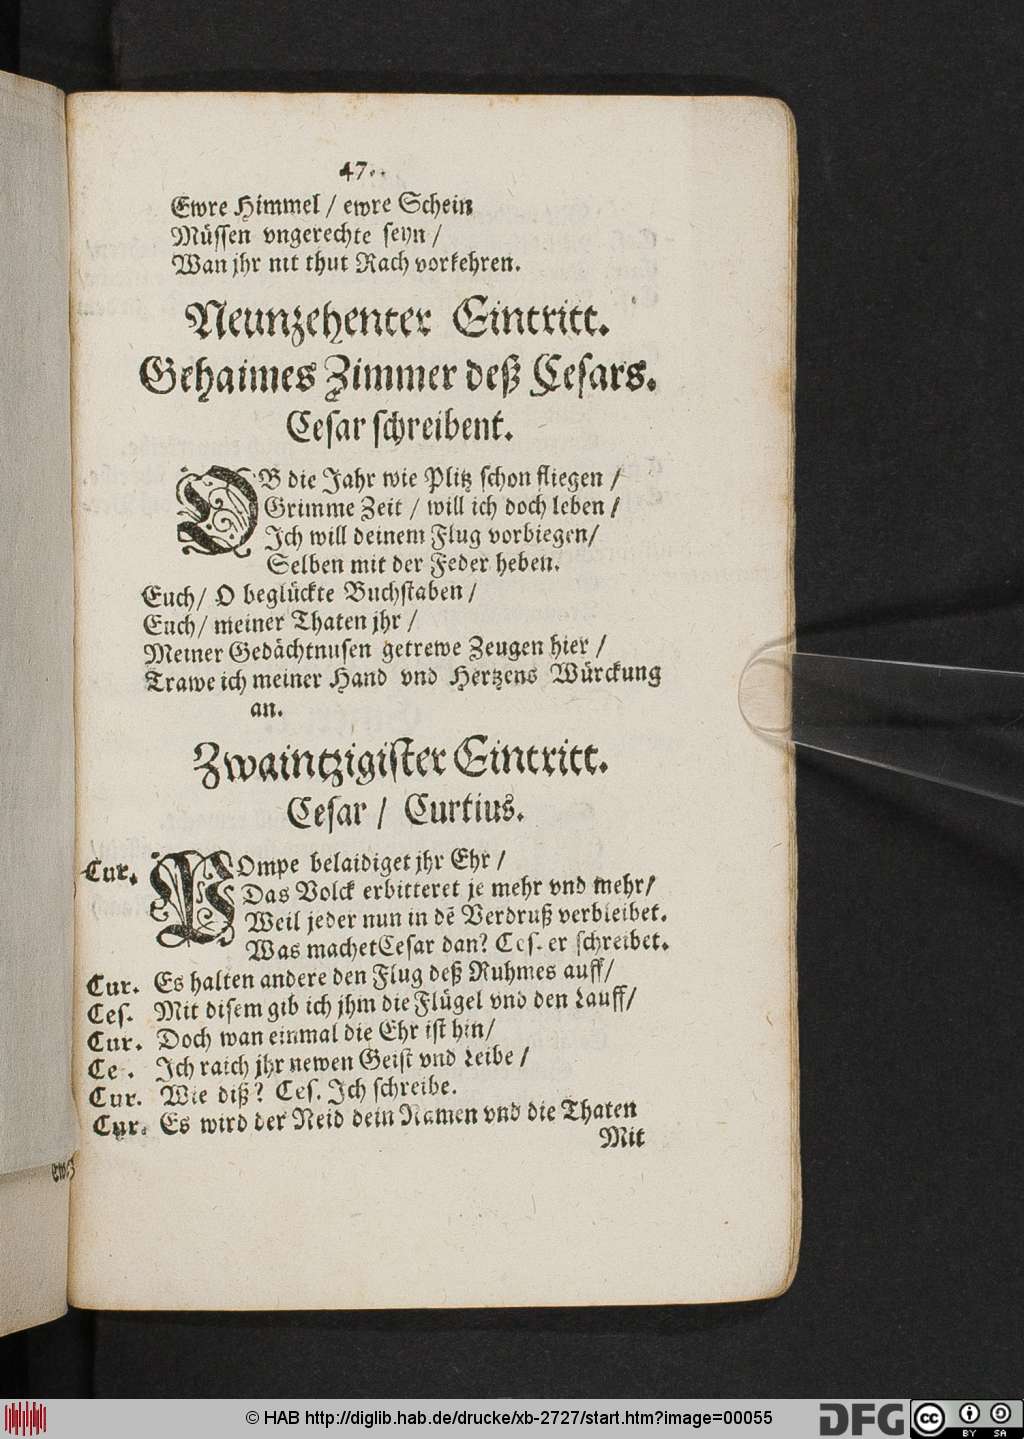 47.
Ewre Himmel / ewre Schein
Müssen vngerechte seyn /
Wan jhr nit thut Rach vorkehren.
Neunzehenter Eintritt.
Gehaimes Zimmer deß Cesars.
Cesar schreibent.
OB die Jahr wie Plitz schon fliegen /
Grimme Zeit / will ich doch leben /
Ich will deinem Flug vorbiegen/
Selben mit der Feder heben.
Euch/ O beglückte Buchstaben /
Euch/ meiner Thaten jhr /
Meiner Gedächtnusen getrewe Zeugen hier /
Trawe ich meiner Hand vnd Hertzens Würckung
an.
Zwaintzigister Eintritt.
Cesar / Curtius.
Cur. POmpe belaidiget jhr Ehr /
Das Volck erbitteret je mehr vnd mehr/
Weil jeder nun in dẽ Verdruß verbleibet.
Was machet Cesar dan? Ces. er schreibet.
Cur. Es halten andere den Flug deß Ruhmes auff/
Ces. Mit disem gib ich jhm die Flügel vnd den Lauff/
Cur. Doch wan einmal die Ehr ist hin/
Ce. Ich raich jhr newen Geist vnd Leibe /
Cur. Wie diß? Ces. Ich schreibe.
Cur. Es wird der Neid dein Namen vnd die Thaten
Mit
© HAB http://diglib.hab.de/drucke/xb-2727/start.htm?image=00055
DFG
cc BY SA